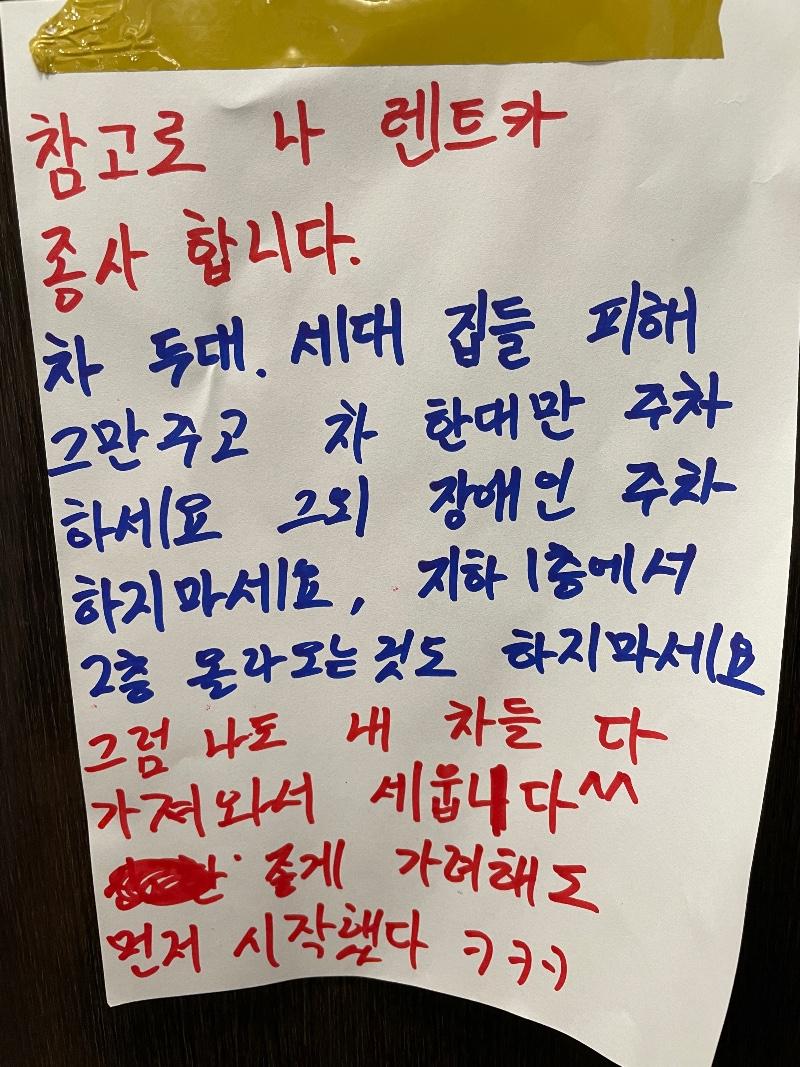 참고로 나 렌트카
종사 합니다.
차 두대. 세대 집들 피해
그만주고 차 한대만 주차
하세요 그외 장애인 주차
하지마세요, 지하 1층에서
2층 올라오는것도 하지마세요
그럼 나도 내 차들 다
가져와서 세웁니다^^
좋게 가려해도
먼저 시작했다 ㅋㅋㅋ